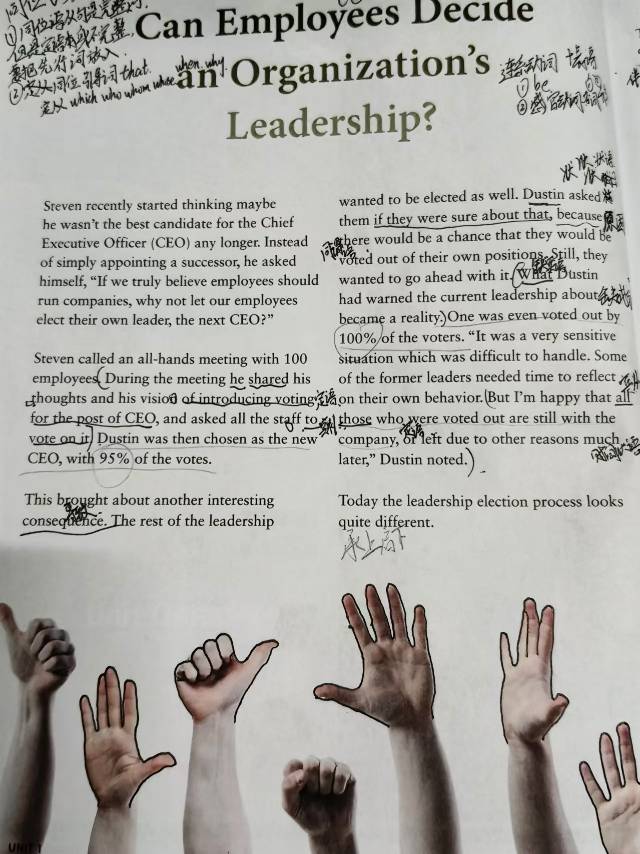 ①同位语从句是完整的.
但是定语本身不完整,
要把先行词放入.
②定义同位引导词that.
定义 which who whom whose when, why.
Can Employees Decide
an Organization's
Leadership?
连系动词
①be
②感官动词
Steven recently started thinking maybe
he wasn't the best candidate for the Chief
Executive Officer (CEO) any longer. Instead
of simply appointing a successor, he asked
himself, "If we truly believe employees should
run companies, why not let our employees
elect their own leader, the next CEO?"
Steven called an all-hands meeting with 100
employees. During the meeting he shared his
thoughts and his vision of introducing voting
for the post of CEO, and asked all the staff to
vote on it. Dustin was then chosen as the new
CEO, with 95% of the votes.
This brought about another interesting
consequence. The rest of the leadership
wanted to be elected as well. Dustin asked
them if they were sure about that, because
there would be a chance that they would be
voted out of their own positions. Still, they
wanted to go ahead with it. What Dustin
had warned the current leadership about
became a reality. One was even voted out by
100% of the voters. "It was a very sensitive
situation which was difficult to handle. Some
of the former leaders needed time to reflect
on their own behavior. But I'm happy that all
those who were voted out are still with the
company, or left due to other reasons much
later," Dustin noted.
Today the leadership election process looks
quite different.
承上启下
UNIT 1